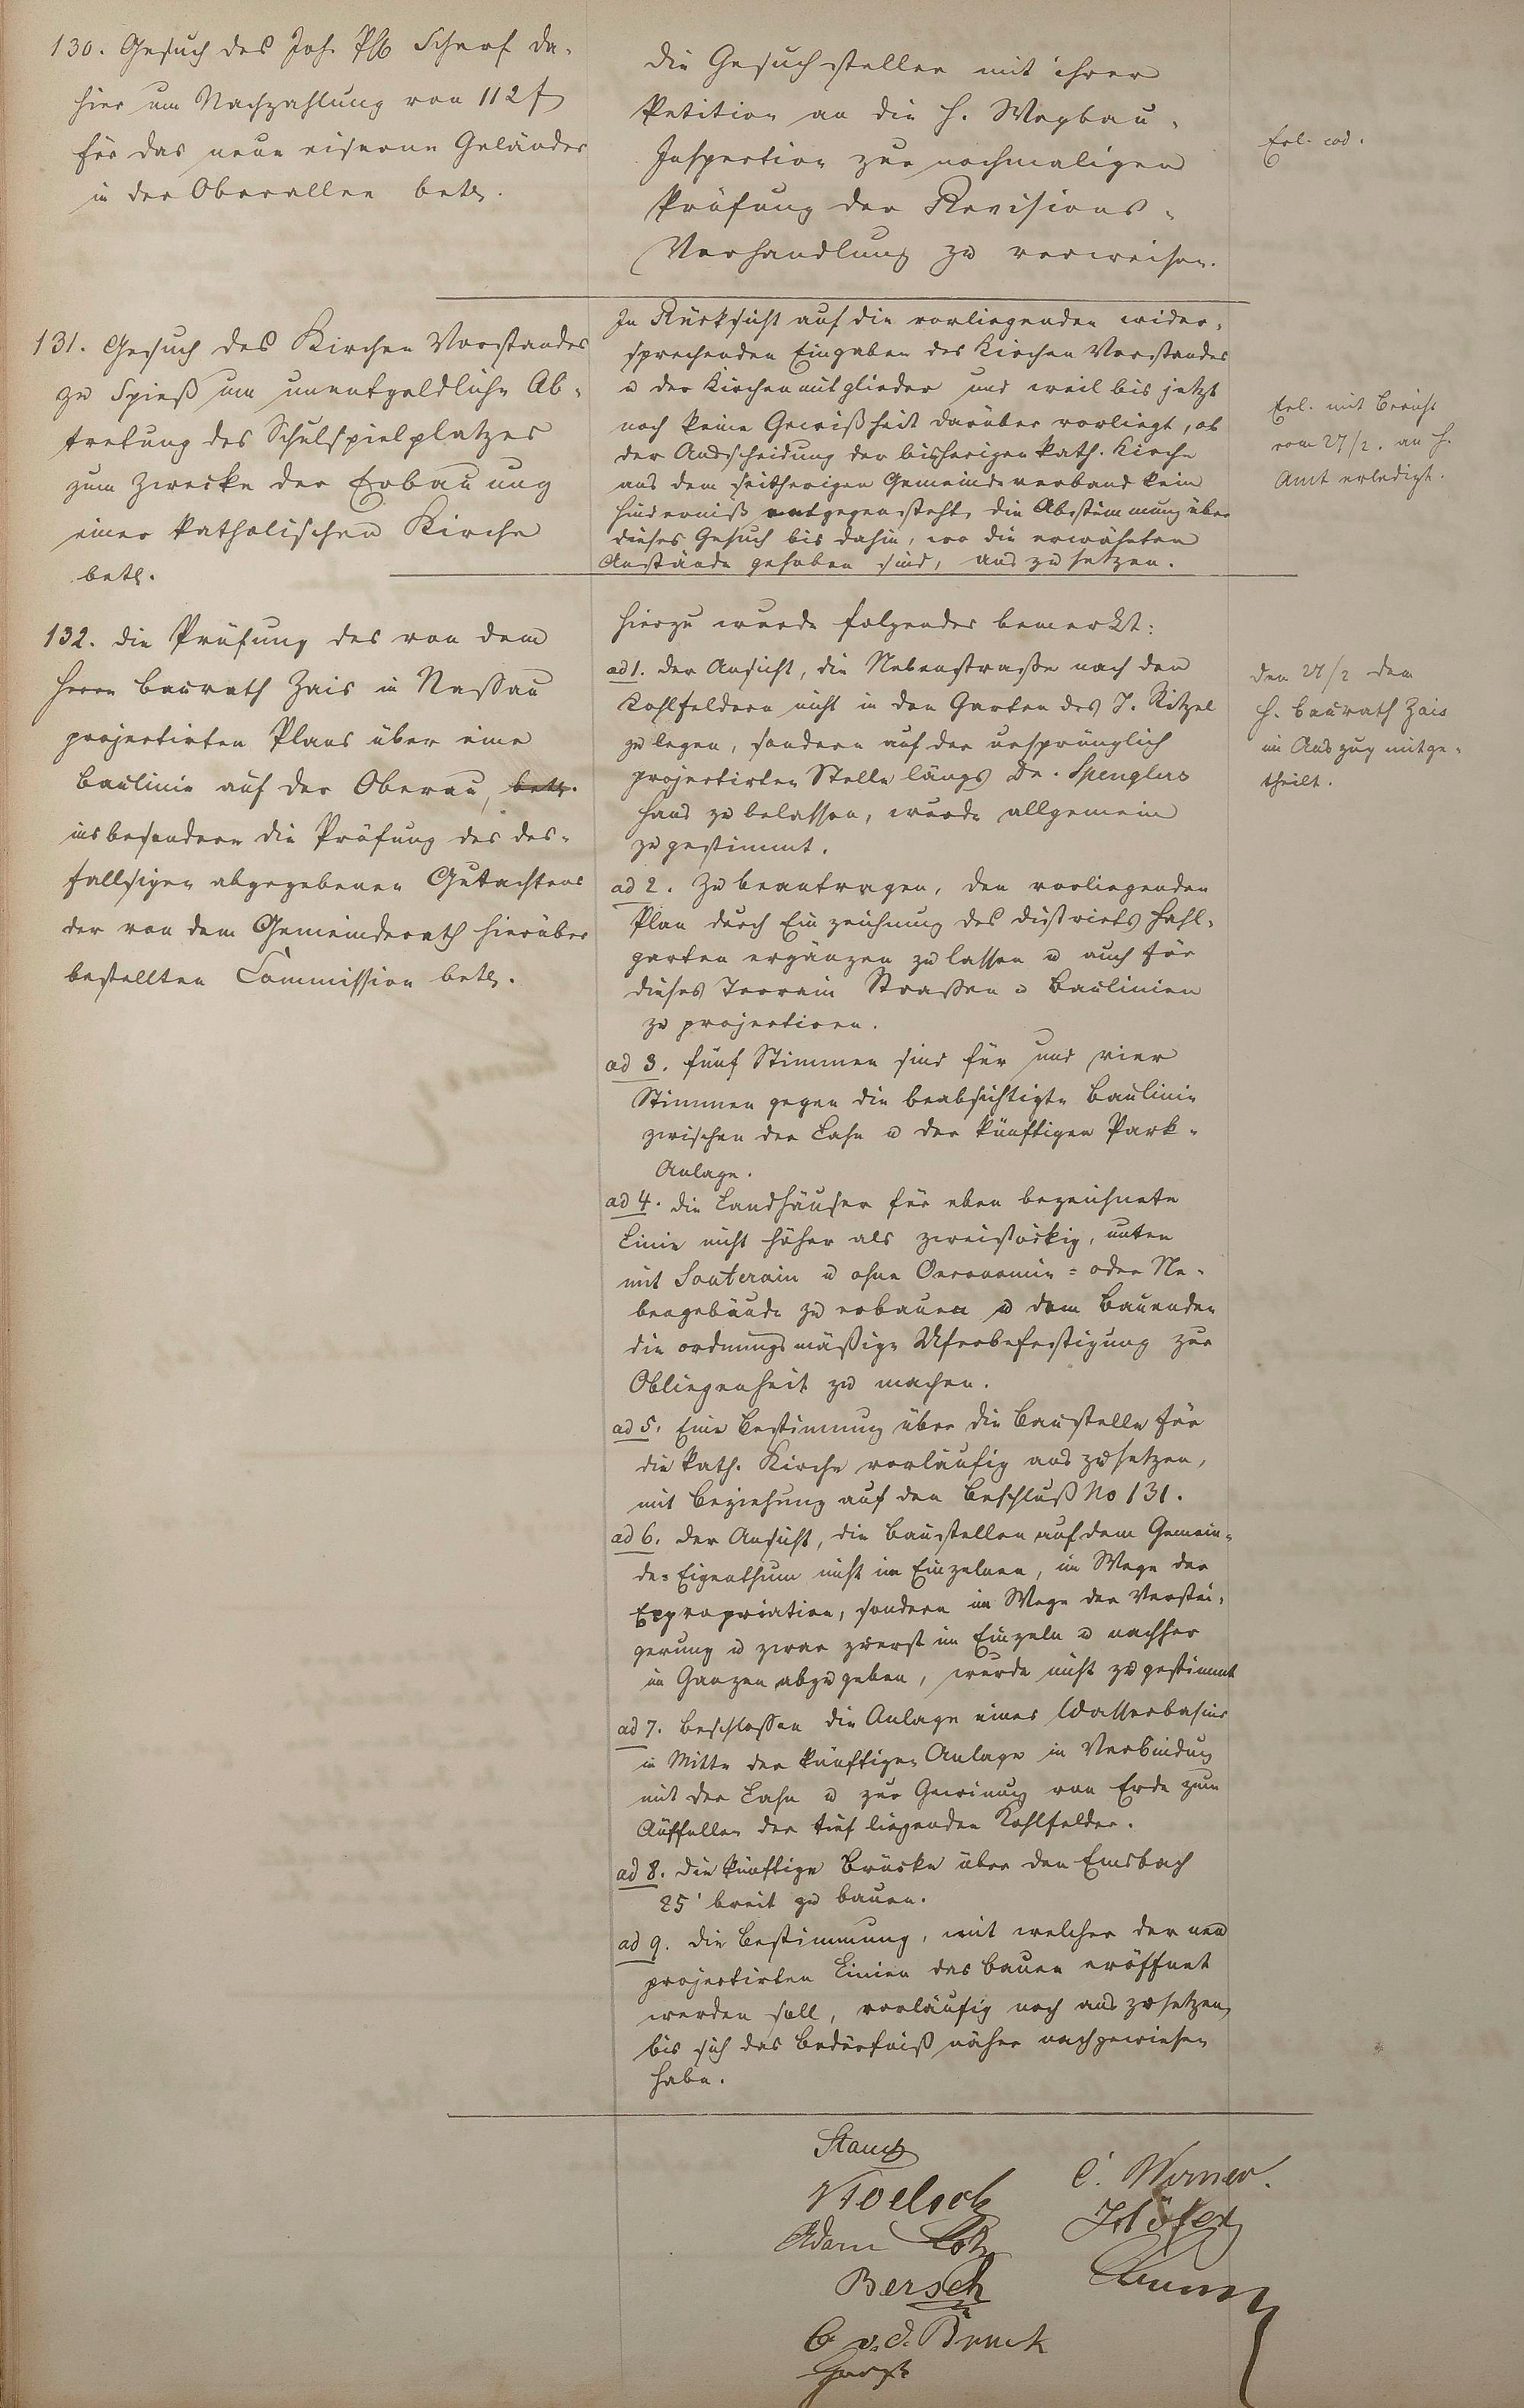 130. Gesuch des Joh. Phil. Scharf da-
hier um Nachzahlung von 112 f
für das neue eiserne Geländer
in der Oberallee betr.
die Gesuchsteller mit ihrer
Petition an die H. Wegbau-
Inspection zur nochmaligen
Prüfung der Revisions-
Verhandlung zu verweisen.
Erl. eod.
131. Gesuch des Kirchen Vorstandes
zu Spieß um unentgeldliche Ab-
tretung des Schulspielplatzes
zum Zwecke der Erbauung
einer katholischen Kirche
betr.
In Rücksicht auf die vorliegenden wider-
sprechenden Eingaben des Kirchen Vorstandes
u der Kirchenmitglieder und weil bis jetzt
noch keine Gewißheit darüber vorliegt, ob
der Ausscheidung der bisherigen kath. Kirche
aus dem seitherigen Gemeindeverband kein
Hinderniß entgegensteht, die Abstimmung über
dieses Gesuch bis dahin, wo die erwähnten
Anstände gehoben sind, aus zu setzen.
Erl. mit Bericht
vom 27/2. an H.
Amt erledigt.
132. die Prüfung des von dem
Herrn Baurath Zais in Nassau
projectirten Plans über eine
Baulinie auf der Oberau, betr.
insbesondere die Prüfung des des-
fallsigen abgegebenen Gutachtens
der von dem Gemeinderath hierüber
bestellten Commission betr.
Hierzu wurde folgendes bemerkt:
ad 1. der Ansicht, die Nebenstraße nach den
Kohlfeldern nicht in den Garten des J. Ritzel
zu legen, sondern auf der ursprünglich
projectirten Stelle längs Dr. Spenglers
Haus zu belassen, wurde allgemein
zugestimmt.
ad 2. Zu beantragen, den vorliegenden
Plan durch Einzeichnung des Districts Hahl-
garten ergänzen zu lassen u auch für
dieses Terrain Straßen u Baulinien
zu projectiren.
ad 3. fünf Stimmen sind für und vier
Stimmen gegen die beabsichtigte Baulinie
zwischen der Lahn u der künftigen Park-
Anlage.
ad 4. die Landhäuser für eben bezeichnete
Linie nicht höher als zweistöckig, unten
mit Souterain u ohne Oeconomie= oder Ne-
bengebäude zu erbauen u dem Bauenden
die ordnungsmäßige Uferbefestigung zur
Obliegenheit zu machen.
ad 5. Eine Bestimmung über die Baustelle für
die kath. Kirche vorläufig aus zu setzen,
mit Beziehung auf den Beschluß No 131.
ad 6. der Ansicht, die Baustellen auf dem Gemein-
de=Eigenthum nicht im Einzelnen, im Wege der
Expropriation, sondern im Wege der Verstei-
gerung u zwar zuerst im Einzeln u nachher
im Ganzen abzugeben, wurde nicht zugestimmt
ad 7. Beschlossen die Anlage eines Wasserbasins
in Mitte der künftigen Anlage in Verbindung
mit der Lahn u zur Gewinnung von Erde zum
Auffüllen der tief liegenden Kohlfelder.
ad 8. die künftige Brücke über den Emsbach
25' breit zu bauen.
ad 9. die Bestimmung, mit welcher der neu
projectirten Linien das Bauen eröffnet
werden soll, vorläufig noch aus zu setzen,
bis sich das Bedürfniß näher nachgewiesen
habe.
den 27/2 dem
H. Baurath Zais
im Auszug mitge-
theilt.
Adam
C. Werner.
Bersch
v. d. Bruck